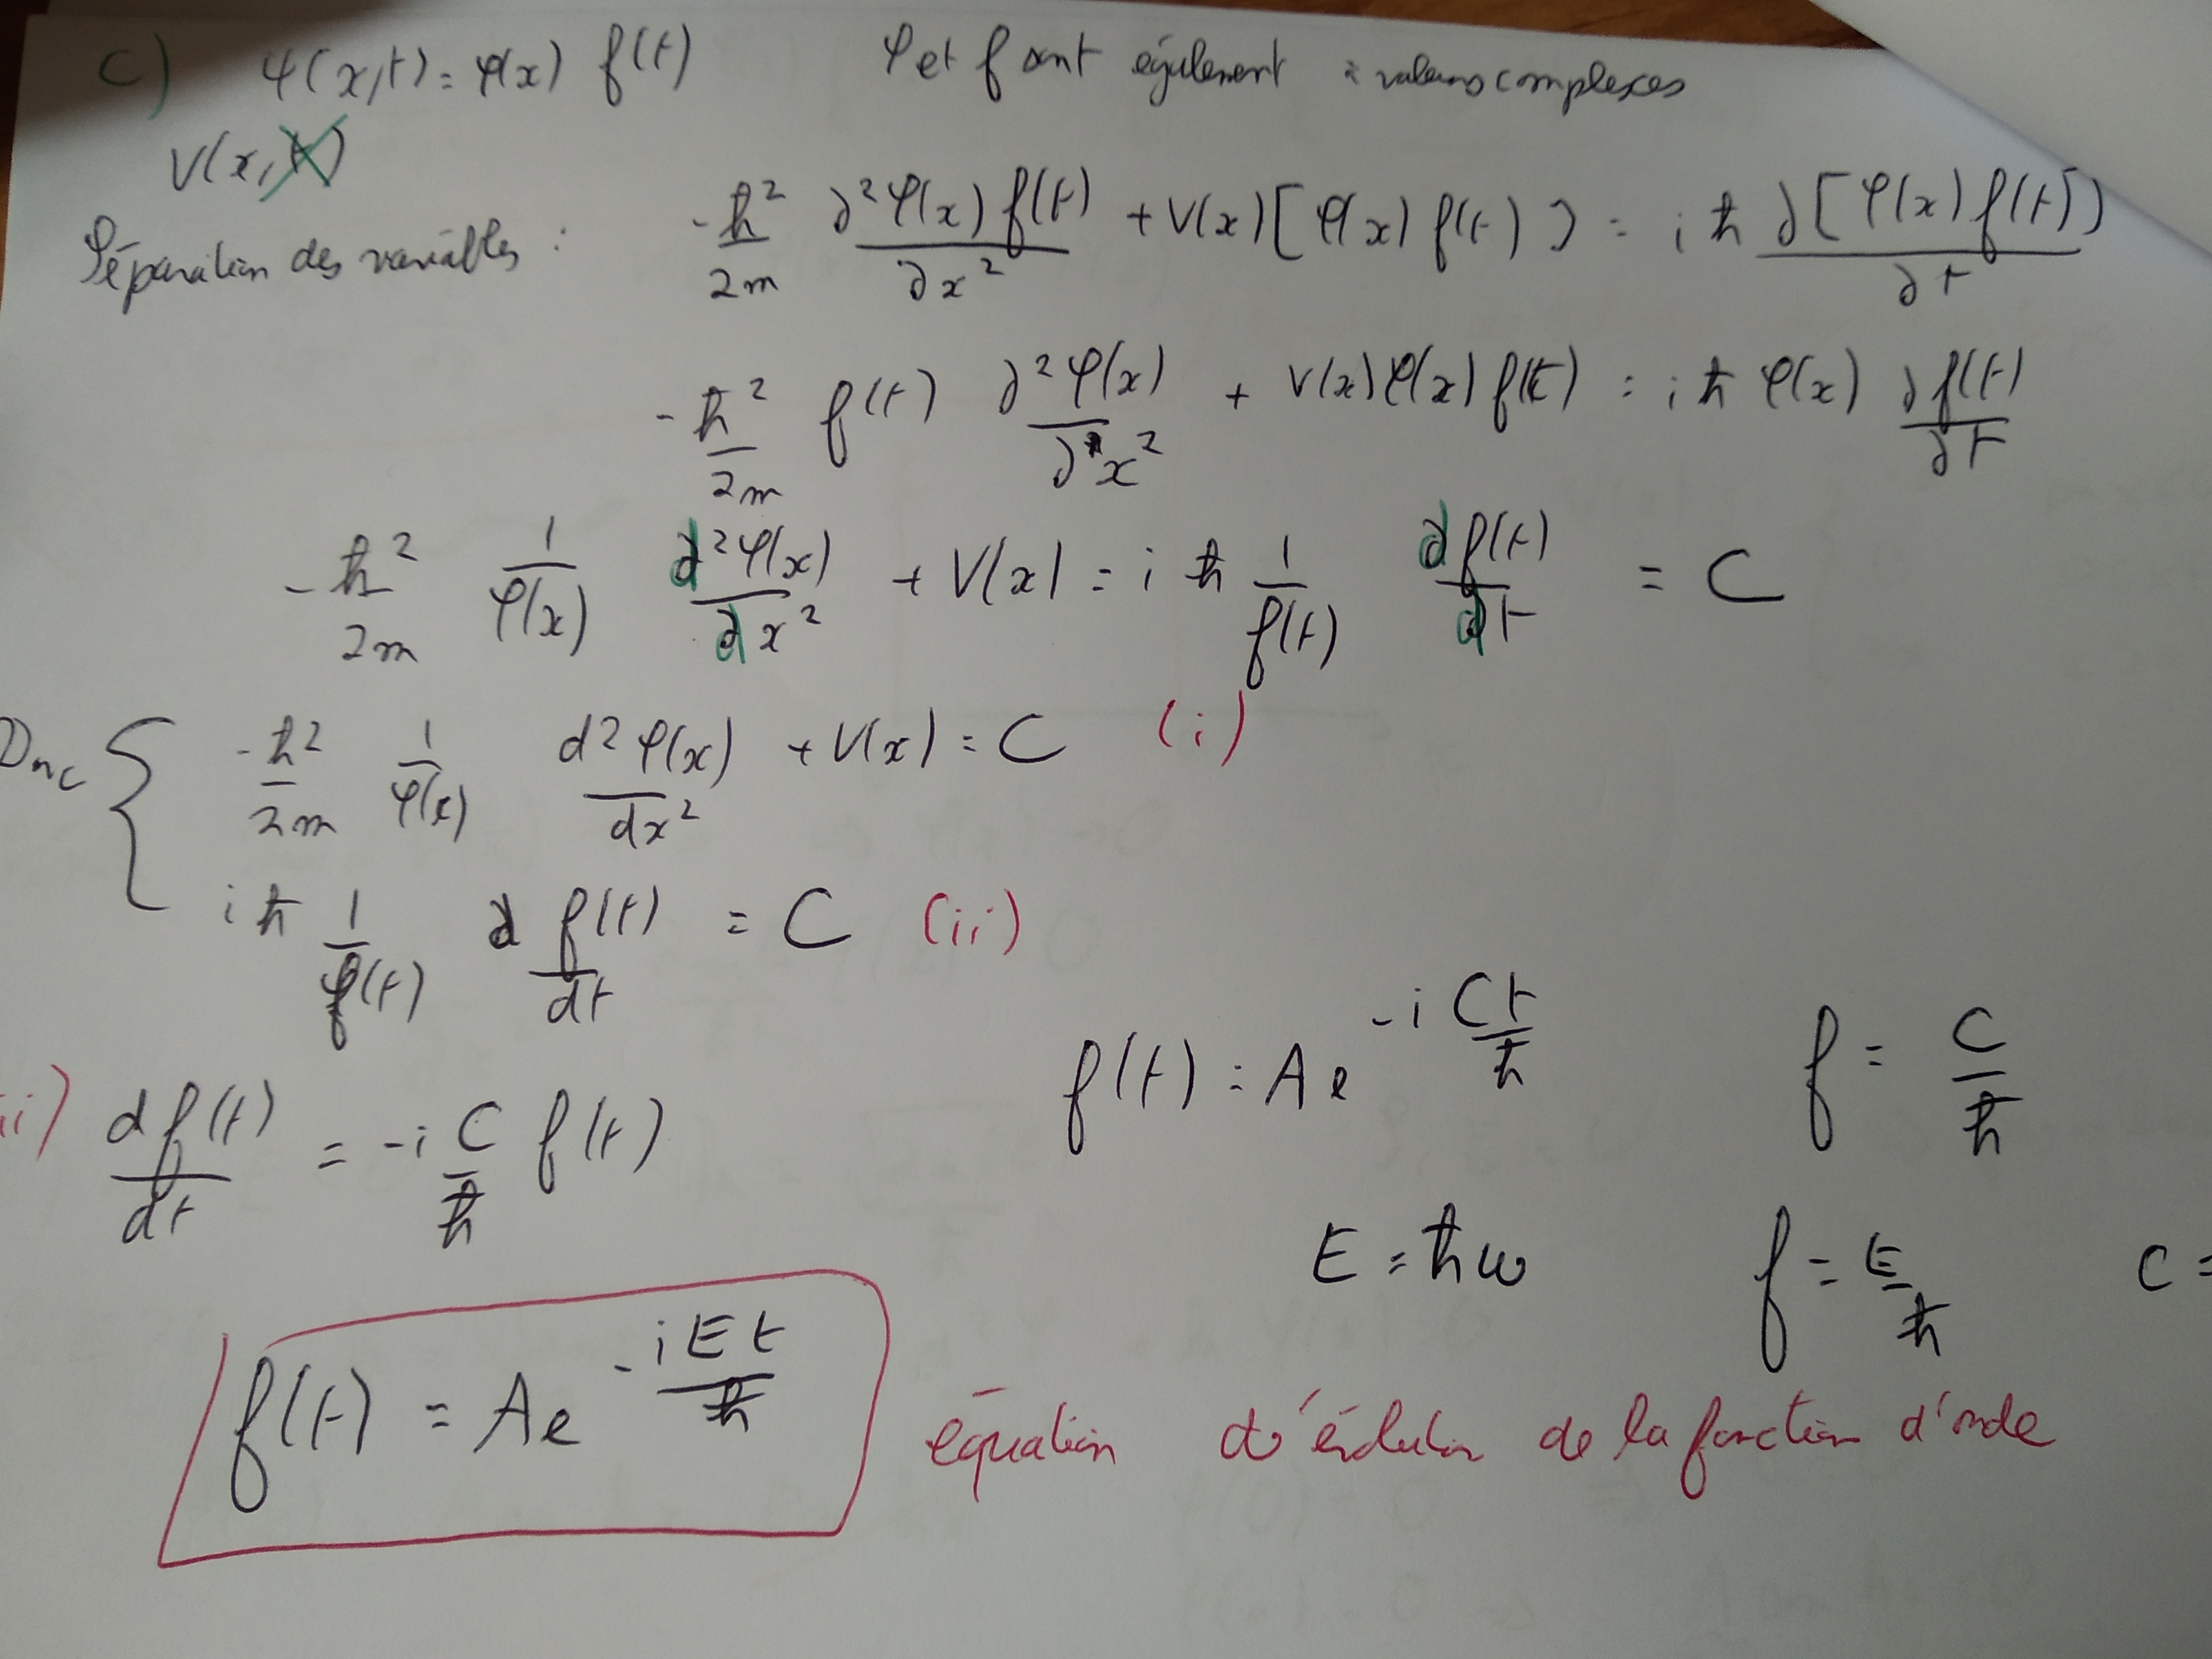 c) ψ(x,t) = φ(x) f(t) φ et f sont également à valeurs complexes
V(x,t)
Séparation des variables : -ħ²/2m ∂²φ(x) f(t)/∂x² + V(x)[φ(x) f(t)] = iħ ∂[φ(x) f(t)]/∂t
-ħ²/2m f(t) ∂²φ(x)/∂x² + V(x)φ(x) f(t) = iħ φ(x) ∂f(t)/∂t
-ħ²/2m 1/φ(x) d²φ(x)/dx² + V(x) = iħ 1/f(t) df(t)/dt = C
Donc { -ħ²/2m 1/φ(x) d²φ(x)/dx² + V(x) = C (i)
iħ 1/f(t) d f(t)/dt = C (ii)
ii) df(t)/dt = -i C/ħ f(t)
f(t) = A e^(-i Ct/ħ) f = C/ħ
E = ħω f = E/ħ C =
f(t) = A e^(-iEt/ħ) équation d'évolution de la fonction d'onde